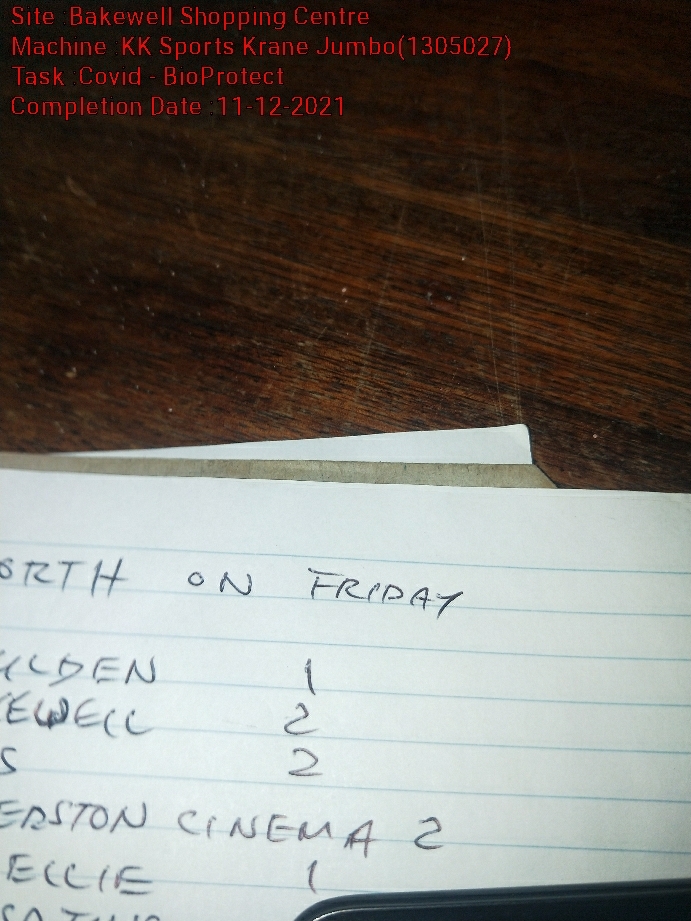 Site :Bakewell Shopping Centre
Machine :KK Sports Krane Jumbo(1305027)
Task :Covid - BioProtect
Completion Date :11-12-2021
ORTH ON FRIDAY
ILDEN 1
EWELL 2
S 2
ERSTON CINEMA 2
ELLIE 1